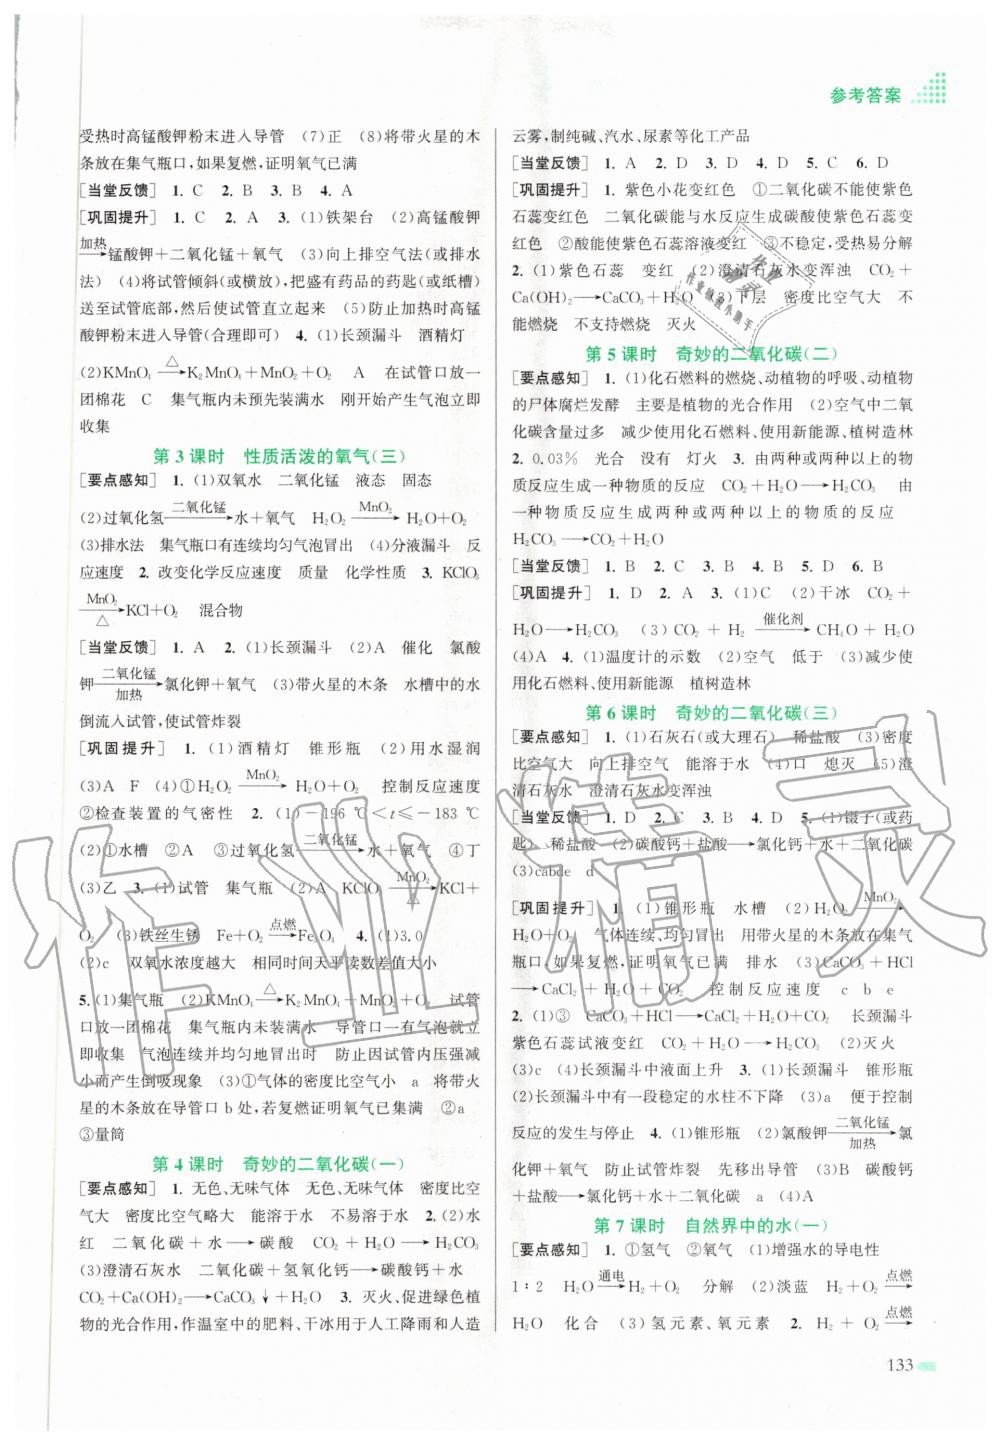 参考答案
受热时高锰酸钾粉末进入导管 (7)正 (8)将带火星的木
条放在集气瓶口,如果复燃,证明氧气已满
[当堂反馈] 1. C 2. B 3. B 4. A
[巩固提升] 1. C 2. A 3. (1)铁架台 (2)高锰酸钾
加热→锰酸钾+二氧化锰+氧气 (3)向上排空气法(或排水
法) (4)将试管倾斜(或横放),把盛有药品的药匙(或纸槽)
送至试管底部,然后使试管直立起来 (5)防止加热时高锰
酸钾粉末进入导管(合理即可) 4. (1)长颈漏斗 酒精灯
(2)KMnO₄ △→K₂MnO₄+MnO₂+O₂ A 在试管口放一
团棉花 C 集气瓶内未预先装满水 刚开始产生气泡立即
收集
第 3 课时 性质活泼的氧气(三)
[要点感知] 1. (1)双氧水 二氧化锰 液态 固态
(2)过氧化氢 二氧化锰→水+氧气 H₂O₂ MnO₂→H₂O+O₂
(3)排水法 集气瓶口有连续均匀气泡冒出 (4)分液漏斗 反
应速度 2. 改变化学反应速度 质量 化学性质 3. KClO₃
MnO₂→△KCl+O₂ 混合物
[当堂反馈] 1. A 2. (1)长颈漏斗 (2)A 催化 氯酸
钾 二氧化锰→加热 氯化钾+氧气 (3)带火星的木条 水槽中的水
倒流入试管,使试管炸裂
[巩固提升] 1. (1)酒精灯 锥形瓶 (2)用水湿润
(3)A F (4)①H₂O₂ MnO₂→H₂O+O₂ 控制反应速度
②检查装置的气密性 2. (1)-196 ℃<t≤-183 ℃
(2)①水槽 ②A ③过氧化氢 二氧化锰→水+氧气 ④丁
(3)乙 3. (1)试管 集气瓶 (2)A KClO₃ MnO₂→△ KCl+
O₂ (3)铁丝生锈 Fe+O₂ 点燃→Fe₃O₄ 4. (1)3.0
(2)c 双氧水浓度越大 相同时间天平读数差值大小
5. (1)集气瓶 (2)KMnO₄ △→K₂MnO₄+MnO₂+O₂ 试管
口放一团棉花 集气瓶内未装满水 导管口一有气泡就立
即收集 气泡连续并均匀地冒出时 防止因试管内压强减
小而产生倒吸现象 (3)①气体的密度比空气小 a 将带火
星的木条放在导管口 b 处,若复燃证明氧气已集满 ②a
③量筒
第 4 课时 奇妙的二氧化碳(一)
[要点感知] 1. 无色、无味气体 无色、无味气体 密度比空
气大 密度比空气略大 能溶于水 不易溶于水 2. (2)水
红 二氧化碳+水→碳酸 CO₂+H₂O→H₂CO₃
(3)澄清石灰水 二氧化碳+氢氧化钙→碳酸钙+水
CO₂+Ca(OH)₂→CaCO₃↓+H₂O 3. 灭火、促进绿色植
物的光合作用,作温室中的肥料、干冰用于人工降雨和人造
云雾,制纯碱、汽水、尿素等化工产品
[当堂反馈] 1. A 2. D 3. D 4. D 5. C 6. D
[巩固提升] 1. 紫色小花变红色 ①二氧化碳不能使紫色
石蕊变红色 二氧化碳能与水反应生成碳酸使紫色石蕊变
红色 ②酸能使紫色石蕊溶液变红 ③不稳定,受热易分解
2. (1)紫色石蕊 变红 (2)澄清石灰水变浑浊 CO₂+
Ca(OH)₂→CaCO₃+H₂O (3)下层 密度比空气大 不
能燃烧 不支持燃烧 灭火
第 5 课时 奇妙的二氧化碳(二)
[要点感知] 1. (1)化石燃料的燃烧、动植物的呼吸、动植物
的尸体腐烂发酵 主要是植物的光合作用 (2)空气中二氧
化碳含量过多 减少使用化石燃料、使用新能源、植树造林
2. 0.03% 光合 没有 灯火 3. 由两种或两种以上的物
质反应生成一种物质的反应 CO₂+H₂O→H₂CO₃ 由
一种物质反应生成两种或两种以上的物质的反应
H₂CO₃→CO₂+H₂O
[当堂反馈] 1. B 2. C 3. B 4. A 5. D 6. B
[巩固提升] 1. D 2. A 3. (1)C (2)干冰 CO₂+
H₂O→H₂CO₃ (3)CO₂+H₂ 催化剂→CH₄O+H₂O
(4)A 4. (1)温度计的示数 (2)空气 低于 (3)减少使
用化石燃料、使用新能源 植树造林
第 6 课时 奇妙的二氧化碳(三)
[要点感知] 1. (1)石灰石(或大理石) 稀盐酸 (3)密度
比空气大 向上排空气 能溶于水 (4)口 熄灭 (5)澄
清石灰水 澄清石灰水变浑浊
[当堂反馈] 1. D 2. C 3. B 4. D 5. (1)镊子(或药
匙) 稀盐酸 (2)碳酸钙+盐酸→氯化钙+水+二氧化碳
(3)cabde d
[巩固提升] 1. (1)锥形瓶 水槽 (2)H₂O₂ MnO₂→
H₂O+O₂ 气体连续、均匀冒出 用带火星的木条放在集气
瓶口,如果复燃,证明氧气已满 排水 (3)CaCO₃+HCl
→CaCl₂+H₂O+CO₂ 控制反应速度 c b e
2. (1)③ CaCO₃+HCl→CaCl₂+H₂O+CO₂ 长颈漏斗
紫色石蕊试液变红 CO₂+H₂O→H₂CO₃ (2)灭火
(3)c (4)长颈漏斗中液面上升 3. (1)长颈漏斗 锥形瓶
(2)长颈漏斗中有一段稳定的水柱不下降 (3)a 便于控制
反应的发生与停止 4. (1)锥形瓶 (2)氯酸钾 二氧化锰→加热 氯
化钾+氧气 防止试管炸裂 先移出导管 (3)B 碳酸钙
+盐酸→氯化钙+水+二氧化碳 a (4)A
第 7 课时 自然界中的水(一)
[要点感知] 1. ①氢气 ②氧气 (1)增强水的导电性
1∶2 H₂O 通电→H₂+O₂ 分解 (2)淡蓝 H₂+O₂ 点燃→
H₂O 化合 (3)氢元素、氧元素 2. H₂+O₂ 点燃→
133
作业精灵